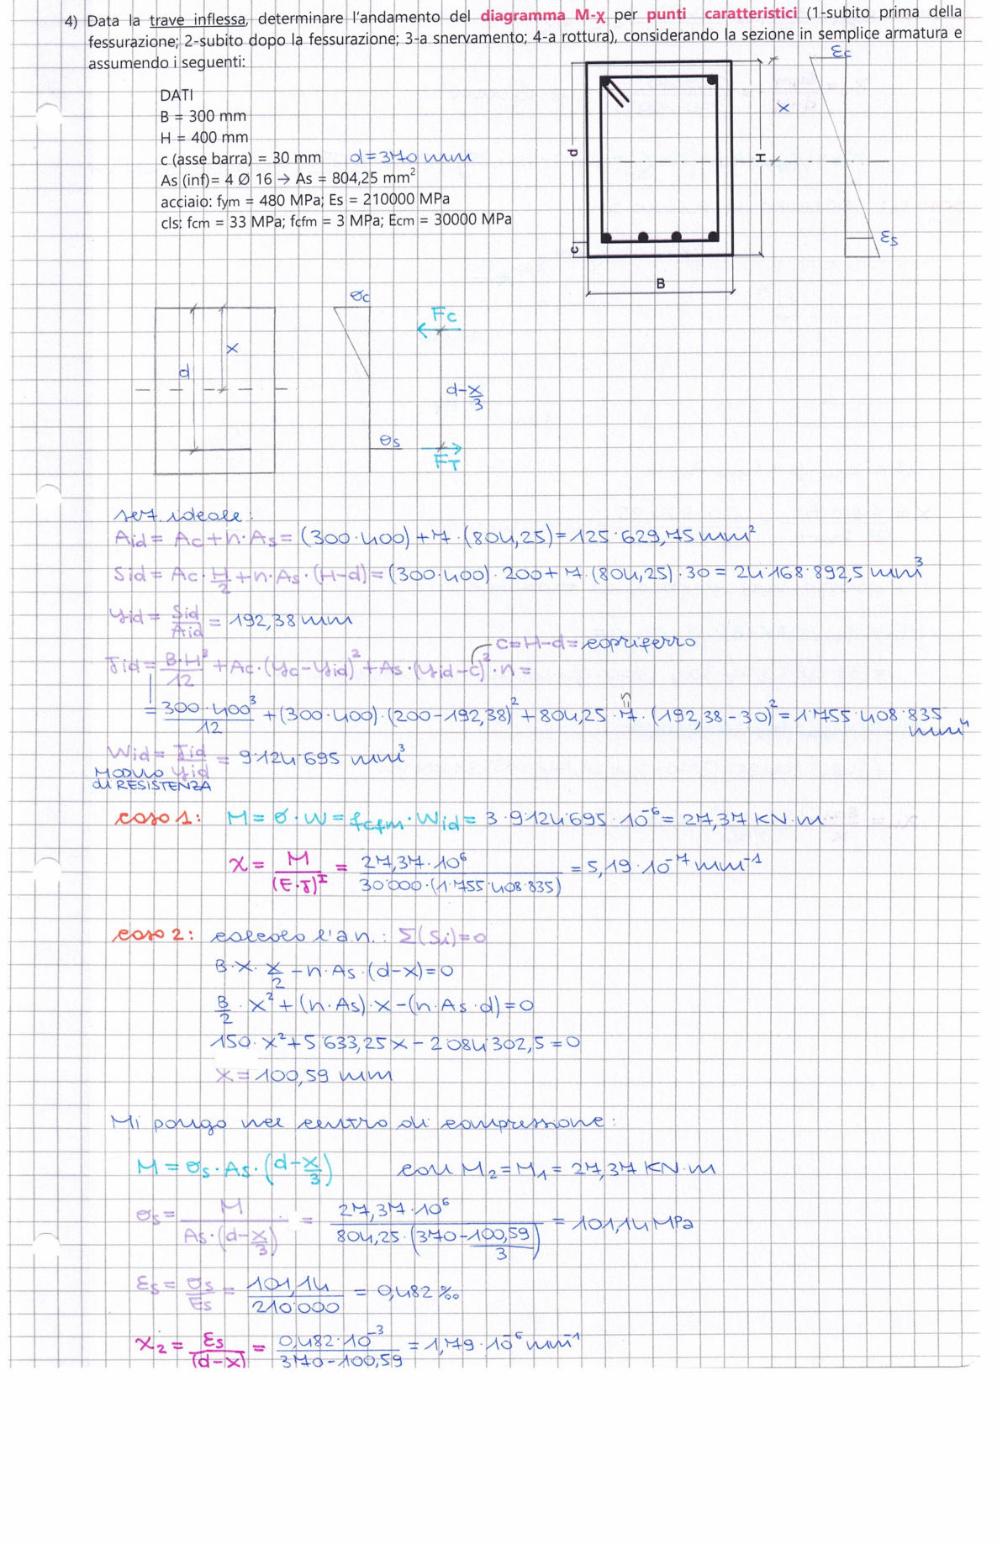 4) Data la trave inflessa, determinare l'andamento del diagramma M-χ per punti caratteristici (1-subito prima della
fessurazione; 2-subito dopo la fessurazione; 3-a snervamento; 4-a rottura), considerando la sezione in semplice armatura e
assumendo i seguenti:
DATI
B = 300 mm
H = 400 mm
c (asse barra) = 30 mm d=370 mm
As (inf)= 4 Ø 16 → As = 804,25 mm²
acciaio: fym = 480 MPa; Es = 210000 MPa
cls: fcm = 33 MPa; fcfm = 3 MPa; Ecm = 30000 MPa
d
c
H
B
x
εc
εs
d
x
σc
σs
Fc
d-x/3
FT
sez ideale:
Aid = Ac+n·As = (300·400)+7·(804,25)=125·629,75 mm²
Sid = Ac·H/2+n·As·(H-d)=(300·400)·200+7·(804,25)·30=24·168·892,5 mm³
yid = Sid/Aid = 192,38 mm
c=H-d=copriferro
Jid = B·H³/12 + Ac·(yc-yid)²+As·(yid-c)²·n=
= 300·400³/12 + (300·400)·(200-192,38)²+804,25·7·(192,38-30)²=1·755·408·835 mm⁴
n
Wid = Jid/yid = 9·124·695 mm³
MODULO di RESISTENZA
caso 1: M = σ·W = fcfm·Wid = 3·9·124·695·10⁻⁶ = 27,37 KN·m
χ = M/(E·J)ᴵ = 27,37·10⁶/30·000·(1·755·408·835) = 5,19·10⁻⁷ mm⁻¹
caso 2: calcolo l'a.n.: Σ(Si)=0
B·x·x/2 -n·As·(d-x)=0
B/2·x²+(n·As)·x-(n·As·d)=0
150·x²+5·633,25x-2·084·302,5=0
x=100,59 mm
Mi pongo nel centro di compressione:
M = σs·As·(d-x/3) con M₂=M₁= 27,37 KN·m
σs = M/As·(d-x/3) = 27,37·10⁶/804,25·(370-100,59/3) = 101,14 MPa
εs = σs/Es = 101,14/210·000 = 0,482 ‰
χ₂ = εs/(d-x) = 0,482·10⁻³/370-100,59 = 1,79·10⁻⁶ mm⁻¹